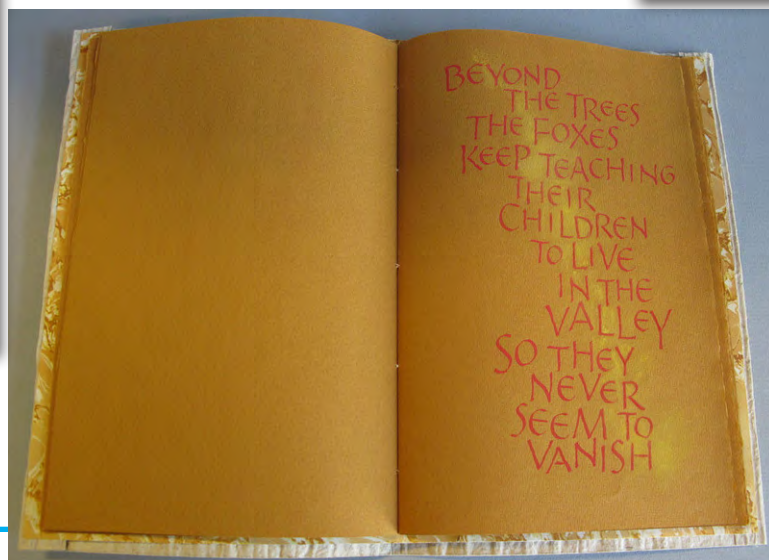 BEYOND
THE TREES
THE FOXES
KEEP TEACHING
THEIR
CHILDREN
TO LIVE
IN THE
VALLEY
SO THEY
NEVER
SEEM TO
VANISH